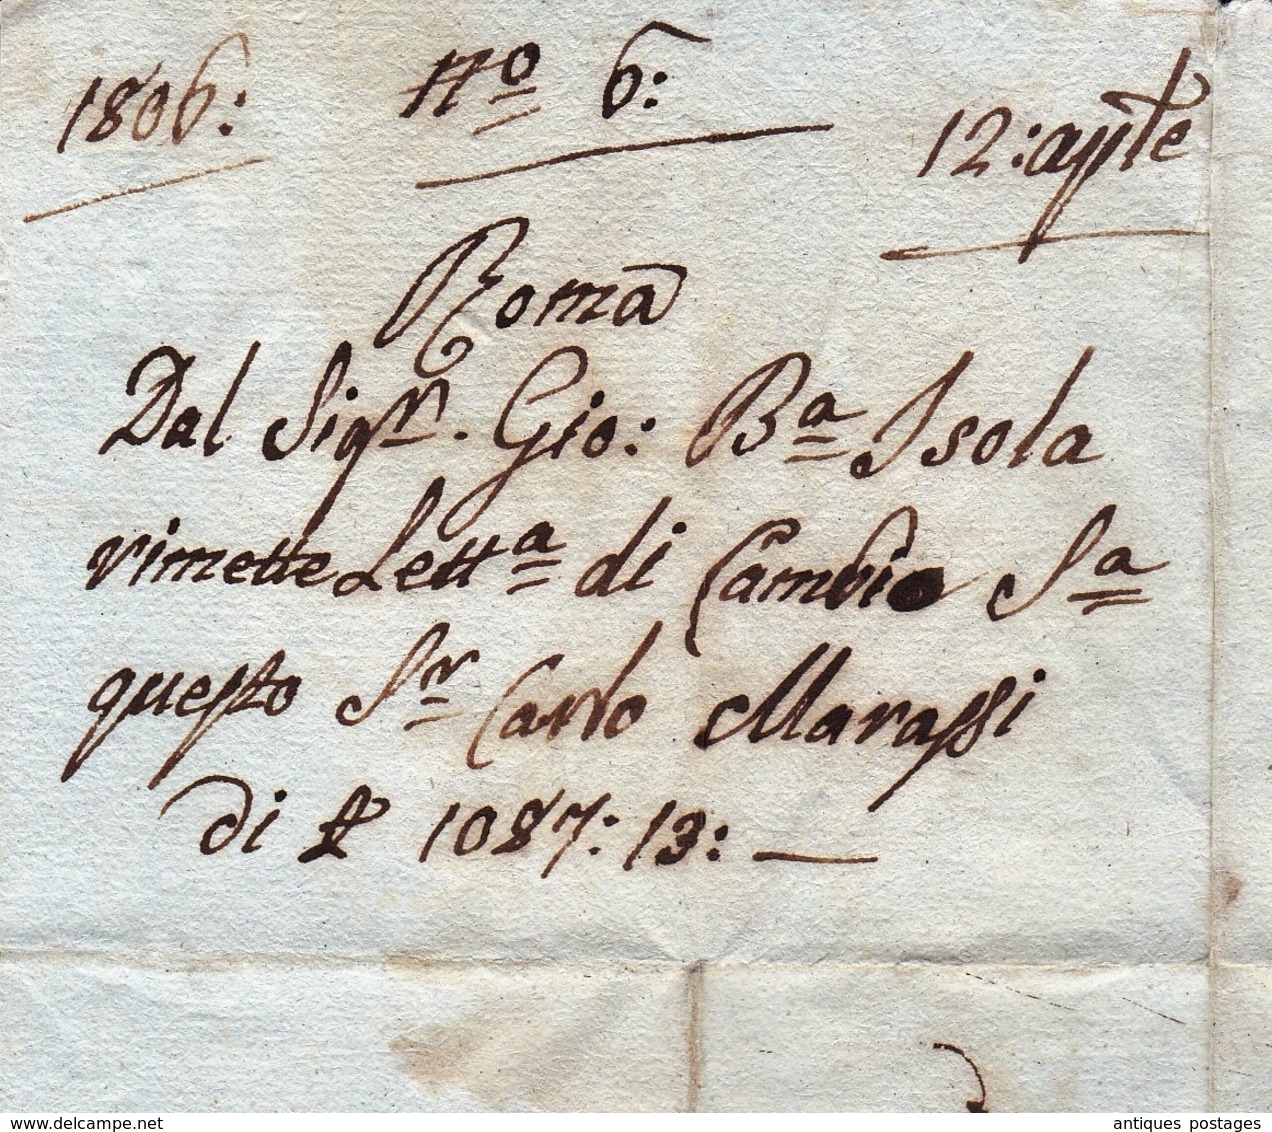 1806: No 6: 12: aplle
Roma
Dal Sigr. Gio: Ba Isola
rimette Letta di Cambio Sa
questo Sr Carlo Marassi
di £ 1087: 13: —
www.delcampe.net
antiques postages